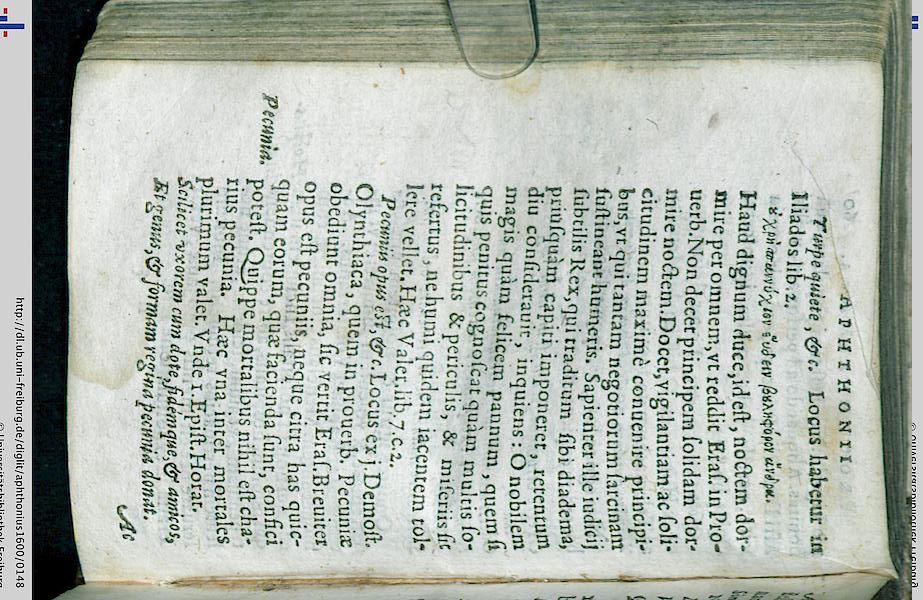 APHTHONII
Turpe quiete, &c. Locus habetur in
Iliados lib. 2.
οὐ χρὴ παννύχιον εὕδειν βουληφόρον ἄνδρα.
Haud dignum duce, id est, noctem dor-
mire per omnem, vt reddit Eras. in Pro-
uerb. Non decet principem solidam dor-
mire noctem. Docet, vigilantiam ac soli-
citudinem maximè conuenire principi-
bus, vt qui tantam negotiorum sarcinam
sustineant humeris. Sapienter ille iudicij
subtilis Rex, qui traditum sibi diadema,
priusquàm capiti imponeret, retentum
diu considerauit, inquiens: O nobilem
magis quàm felicem pannum, quem si
quis penitus cognoscat quàm multis so-
licitudinibus & periculis, & miseriis sit
refertus, ne humi quidem iacentem tol-
lere vellet. Hæc Valer. lib. 7. c. 2.
Pecuniis opus est, &c. Locus ex j. Demost.
Olynthiaca, quem in prouerb. Pecuniæ
obediunt omnia, sic vertit Eras. Breuiter,
opus est pecuniis, neque citra has quic-
quam eorum, quæ facienda sunt, confici
Pecunia. potest. Quippe mortalibus nihil est cha-
rius pecunia. Hæc vna inter mortales
plurimum valet. Vnde 1 Epist. Horat.
Scilicet vxorem cum dote, fidemque, & amicos,
Et genus, & formam regina pecunia donat.
Ac
http://dl.ub.uni-freiburg.de/diglit/aphthonius1600/0148
© Universitätsbibliothek Freiburg